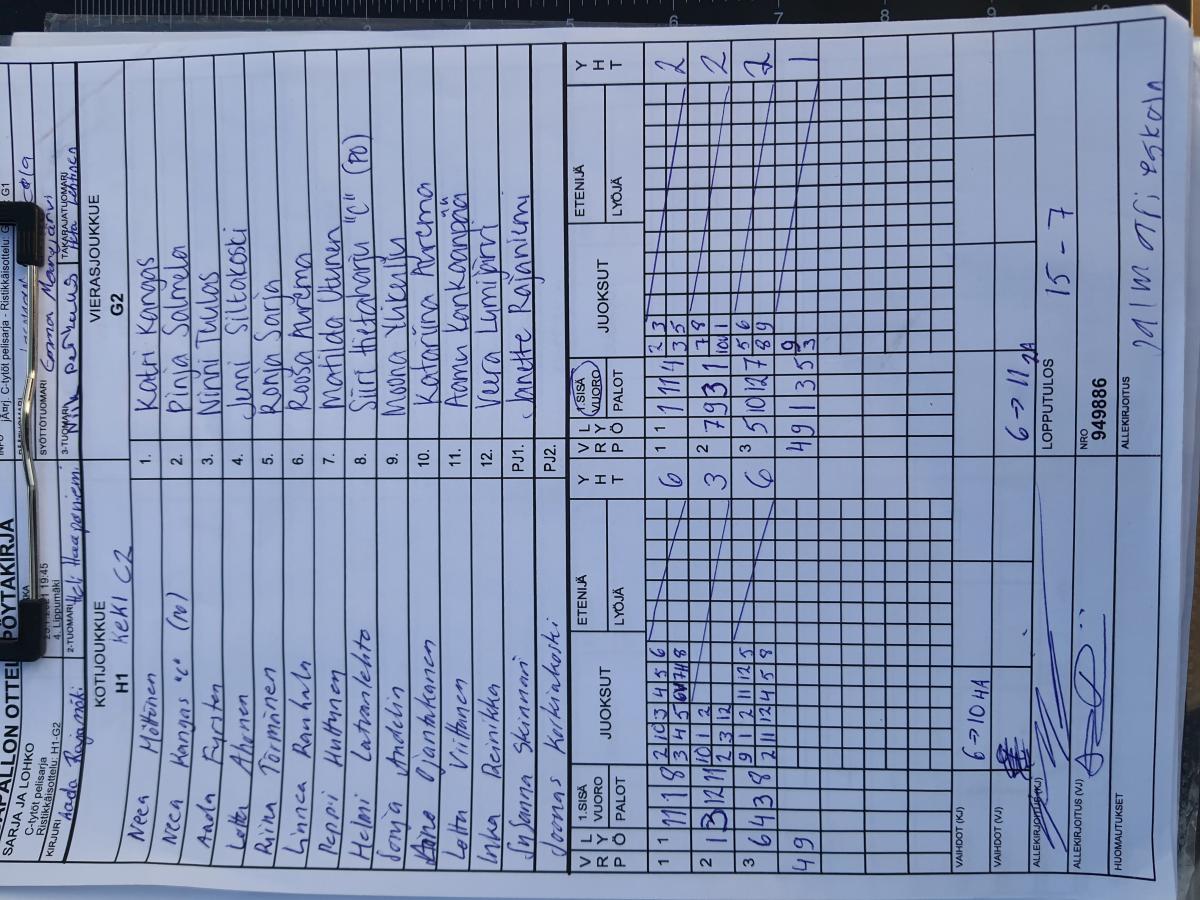 PÖYTÄKIRJA
SARJA JA LOHKO
C-tytöt pelisarja
Ristikkäisottelu: H1-G2
19:45
4. Lippumäki
jÄnrj. C-tytöt pelisarja - Ristikkäisottelu: G
G1
KIRJURI
Rajamäki
2-TUOMARI
Heli Haapaniemi
SYÖTTÖTUOMARI
3-TUOMARI
TAKARAJATUOMARI
Lehtinen
KOTIJOUKKUE
H1
KeKi C2
VIERASJOUKKUE
G2
Neea Möttönen
1.
Katri Kangas
Neea Kangas "C"
2.
Pinja Salmela
3.
Ninni Tuulos
Lotta Ahonen
4.
Jenni Siltakoski
Riina Törmänen
5.
Ronja Sarja
Linnea Rauhala
6.
Roosa Aurema
Peppi Huttunen
7.
Matilda Utunen
Helmi Latvanlehto
8.
Siiri Hietaharju "C" (PO)
Sonja Andelin
9.
Moona Ylikallu
Ojantakanen
10.
Katariina Aurema
Lotta Viittanen
11.
Aamu Kankaanpää
Inka Reinikka
12.
Veera Lumijärvi
Susanna Skinnari
PJ1.
Janette Rajaniemi
Joonas Korkiakoski
PJ2.
V R P
L Y Ö
1.SISÄ VUORO
PALOT
JUOKSUT
ETENIJÄ
LYÖJÄ
Y H T
V R P
L Y Ö
1.SISÄ VUORO
PALOT
JUOKSUT
ETENIJÄ
LYÖJÄ
Y H T
1 1 11 1 8
2 10 3 4 5 6
6
1 1 1 11 4
2 3
2
3 5
2 1 3 12 11
10 1 2
2 3 12
3
2 7 9 3 1
7 8
2
3 6 4 3 8
9 1 2 11 12 5
2 11 12 4 5 8
6
3 5 10 12 7
5 6
8 9
2
4 9
4 9 1 3 5
9
3
1
VAIHDOT (KJ)
6→10 4A
VAIHDOT (VJ)
6→11 2A
ALLEKIRJOITUS (KJ)
LOPPUTULOS
15 - 7
ALLEKIRJOITUS (VJ)
NRO
949886
HUOMAUTUKSET
ALLEKIRJOITUS